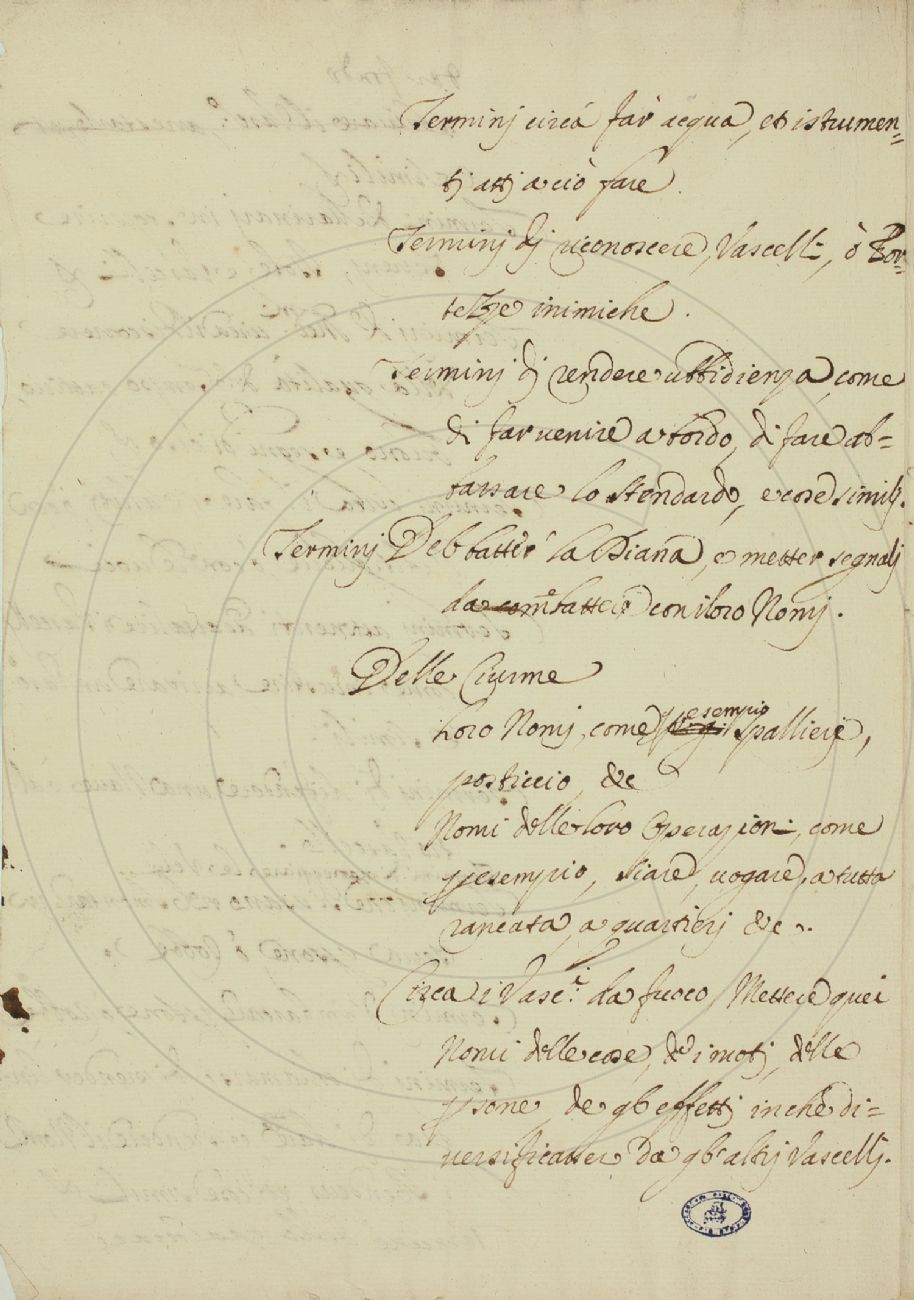 Terminj circa far acqua, et istrumen=
tj attj a ciò fare.
Terminj dj riconoscere Vascelli, ò For=
tezze inimiche.
Terminj dj rendere ubbidienza, come
di far venire a bordo, di fare ab=
bassare lo stendardo, e cose similj.
Terminj Del battér la Diana, e metter segnalj
da combattere con i loro Nomj.
Delle Ciurme
Loro Nomj, come p esempio Spallierj,
posticcio, &c
Nomi delle loro Operazioni, come
p esempio, siare, vogare, a tutta
rancata, a quartierj &c.
Circa i Vasc.i da fuoco, Mettere quei
Nomi delle cose, de i motj, delle
psone, de gli effettj in che di=
versificasser da gli altrj Vascellj.